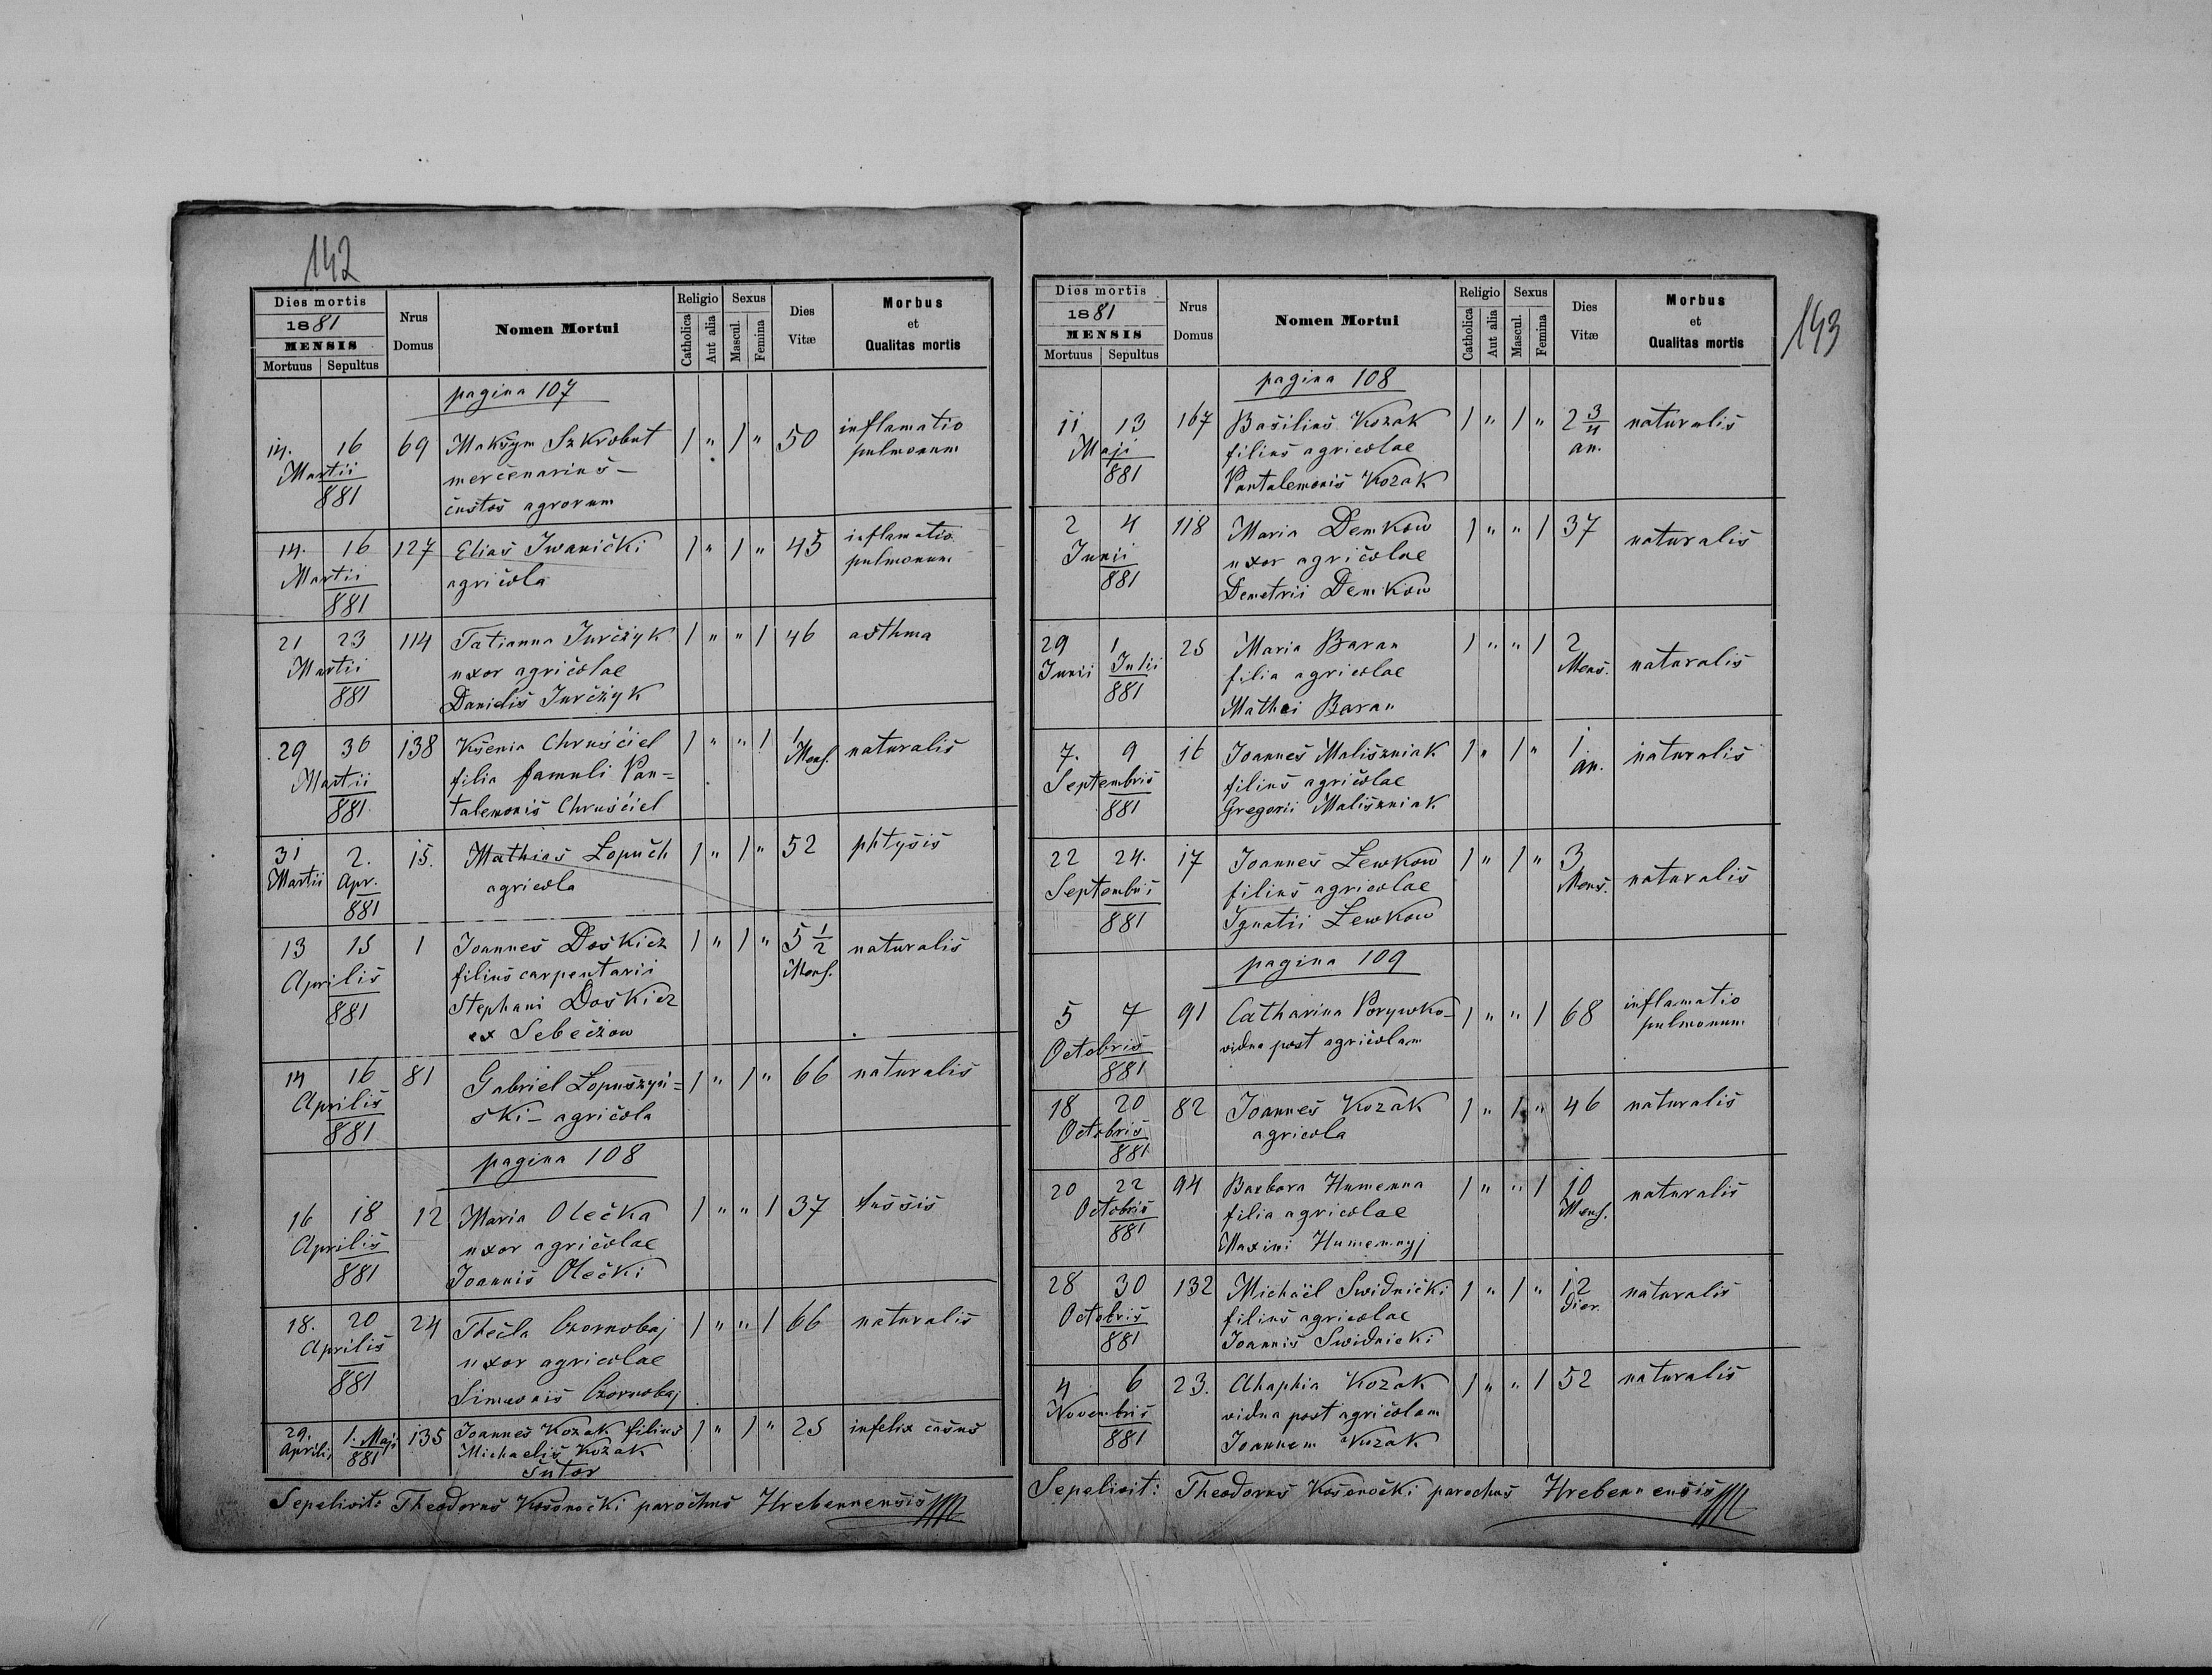 142
Dies mortis
1881
MENSIS
Mortuus Sepultus
Nrus Domus
Nomen Mortui
Religio
Catholica
Aut alia
Sexus
Mascul.
Femina
Dies Vitæ
Morbus
et
Qualitas mortis
pagina 107
14. 16 69 Maksym Szkrobut 1 " 1 " 50 inflamatio
Martii mercenarius – pulmonum
881 custos agrorum
14. 16 127 Elias Iwanicki 1 " 1 " 45 inflamatio
Martii agricola pulmonum
881
21 23 114 Tatianna Jurczyk 1 " " 1 46 asthma
Martii uxor agricolae
881 Danielis Jurczyk
29 30 138 Ksenia Chruściel 1 " " 1 1 naturalis
Martii filia famuli Pan= Mens.
881 talemonis Chruściel
31 2. 15. Mathias Łopuch 1 " 1 " 52 phtysis
Martii Apr. agricola
881
13 15 1 Joannes Doskicz 1 " 1 " 5 1/2 naturalis
Aprilis filius carpentarii Mens.
881 Stephani Doskicz
ex Sebeczow
14 16 81 Gabriel Łopuszyń= 1 " 1 " 66 naturalis
Aprilis ski – agricola
881
pagina 108
16 18 12 Maria Olecka 1 " " 1 37 tussis
Aprilis uxor agricolae
881 Joannis Olecki
18. 20 24 Thecla Czornobaj 1 " " 1 66 naturalis
Aprilis uxor agricolae
881 Simeonis Czornobaj
29. 1. Maji 135 Joannes Kozak filius 1 " 1 " 25 infelix casus
Aprilis 881 Michaelis Kozak
sutor
Sepelivit: Theodorus Kosonocki parochus Hrebennensis
143
Dies mortis
1881
MENSIS
Mortuus Sepultus
Nrus Domus
Nomen Mortui
Religio
Catholica
Aut alia
Sexus
Mascul.
Femina
Dies Vitæ
Morbus
et
Qualitas mortis
pagina 108
11 13 167 Basilius Kozak 1 " 1 " 2 3/4 naturalis
Maji filius agricolae an.
881 Pantalemonis Kozak
2 4 118 Maria Demkow 1 " " 1 37 naturalis
Junii uxor agricolae
881 Demetrii Demkow
29 1 25 Maria Baran 1 " " 1 2 naturalis
Junii Julii filia agricolae Mens.
881 Mathei Baran
7. 9 16 Joannes Maliszniak 1 " 1 " 1 naturalis
Septembris filius agricolae an.
881 Gregorii Maliszniak
22 24. 17 Joannes Lewkow 1 " 1 " 3 naturalis
Septembris filius agricolae Mens.
881 Ignatii Lewkow
pagina 109
5 7 91 Catharina Porywko– 1 " " 1 68 inflamatio
Octobris vidua post agricolam pulmonum
881
18 20 82 Joannes Kozak 1 " 1 " 46 naturalis
Octobris agricola
881
20 22 94 Barbara Humenna 1 " " 1 10 naturalis
Octobris filia agricolae Mens.
881 Maximi Humennyj
28 30 132 Michaël Swidnicki 1 " 1 " 12 naturalis
Octobris filius agricolae dier.
881 Joannis Swidnicki
4 6 23. Ahaphia Kozak 1 " " 1 52 naturalis
Novembris vidua post agricolam
881 Joannem Kozak
Sepelivit: Theodorus Kosonocki parochus Hrebennensis